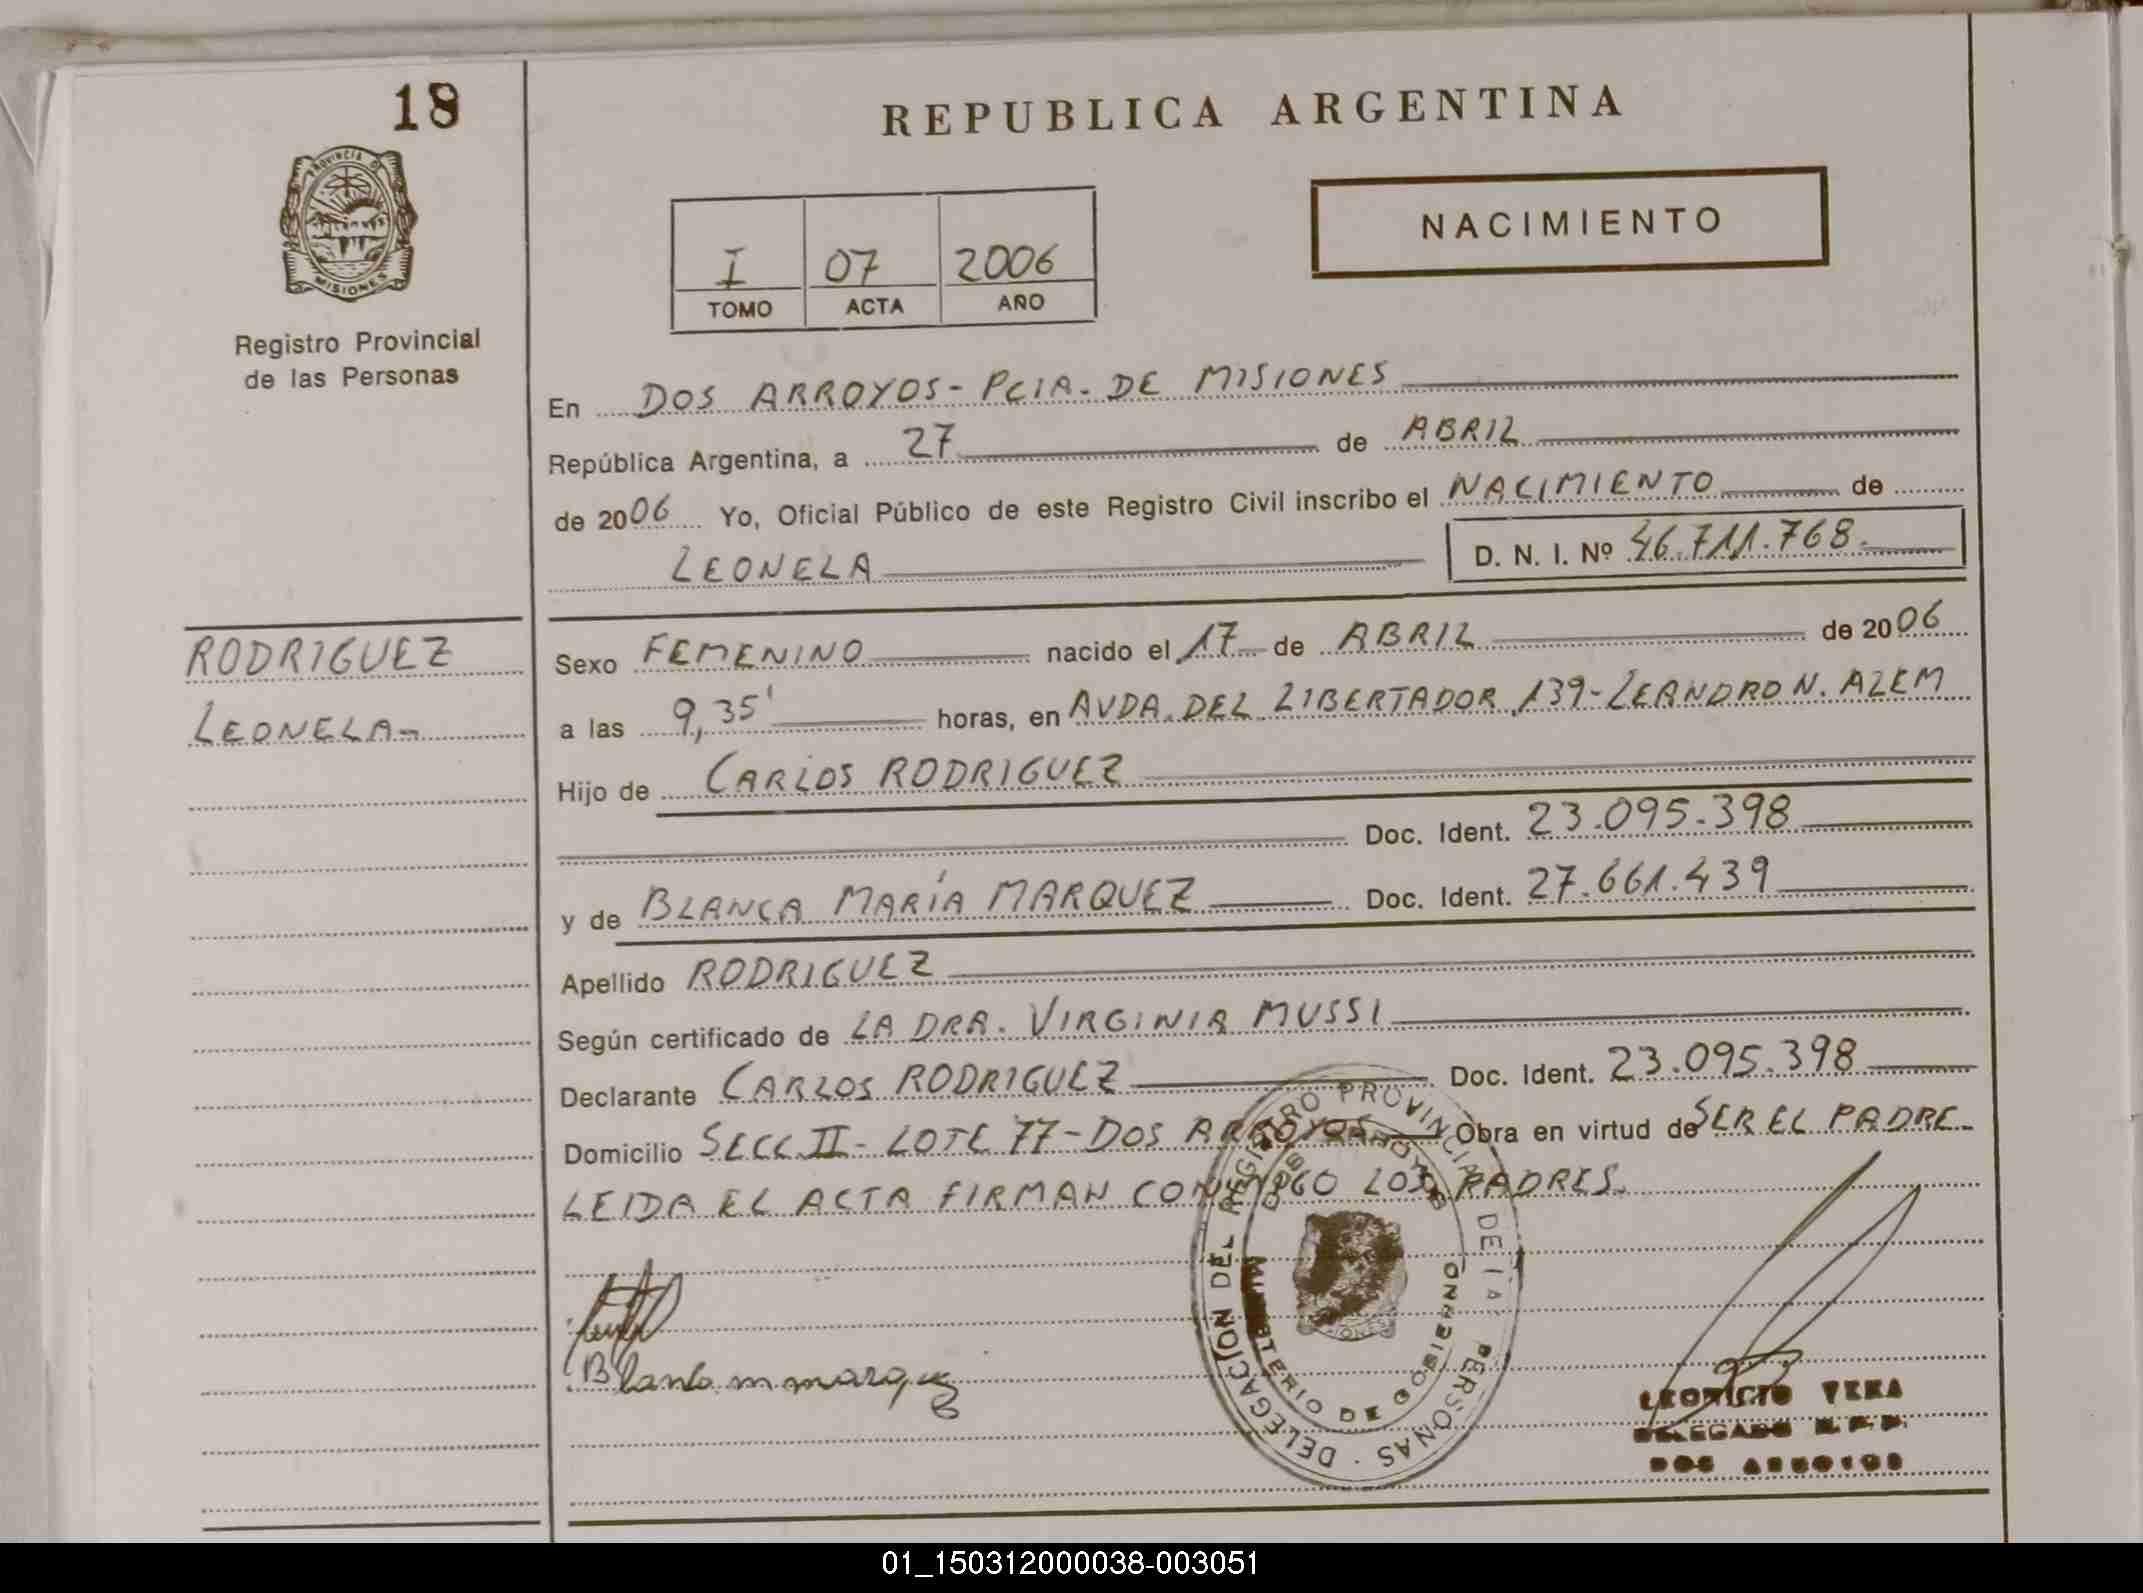 18
REPUBLICA ARGENTINA
PROVINCIA DE
MISIONES
NACIMIENTO
I 07 2006
TOMO ACTA AÑO
Registro Provincial
de las Personas
En DOS ARROYOS - PCIA. DE MISIONES
República Argentina, a 27 de ABRIL
de 2006 Yo, Oficial Público de este Registro Civil inscribo el NACIMIENTO de
LEONELA D. N. I. Nº 46.711.768.
RODRIGUEZ
LEONELA-
Sexo FEMENINO nacido el 17 de ABRIL de 2006
a las 9,35' horas, en AVDA. DEL LIBERTADOR 139 - LEANDRO N. ALEM
Hijo de CARLOS RODRIGUEZ
Doc. Ident. 23.095.398
y de BLANCA MARÍA MARQUEZ Doc. Ident. 27.661.439
Apellido RODRIGUEZ
Según certificado de LA DRA. VIRGINIA MUSSI
Declarante CARLOS RODRIGUEZ Doc. Ident. 23.095.398
Domicilio SECC. II - LOTE 77 - DOS ARROYOS Obra en virtud de SER EL PADRE-
LEIDA EL ACTA FIRMAN CONMIGO LOS PADRES.
DELEGACIÓN DEL REGISTRO PROVINCIAL DE LAS PERSONAS
DOS ARROYOS
MINISTERIO DE GOBIERNO
Blanca m marquez
LEONICIO VERA
DELEGADO R.P.P.
DOS ARROYOS
01_150312000038-003051